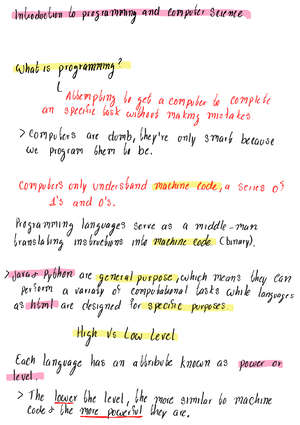 Introduction to programming and computer Science
What is programming?
Attempting to get a computer to complete
an specific task without making mistakes.
> Computers are dumb, they're only smart because
we program them to be.
Computers only understand machine code, a series of
1's and 0's.
Programming languages serve as a middle-man
translating instructions into machine code (binary).
> Java & Python are general purpose, which means they can
perform a variety of computational tasks while languages
as html are designed for specific purposes.
High Vs Low Level
Each language has an attribute known as power or
level.
> The lower the level, the more similar to machine
code & the more powerful they are.